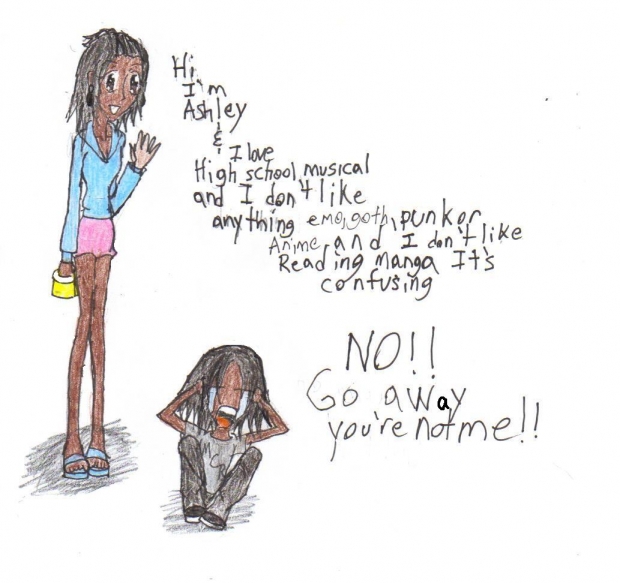 Hi
I'm
Ashley
&
I love
High school musical
and I don't like
anything emo, goth, punk or
Anime, and I don't like
Reading manga It's
confusing
NO!!
Go away
you're not me!!